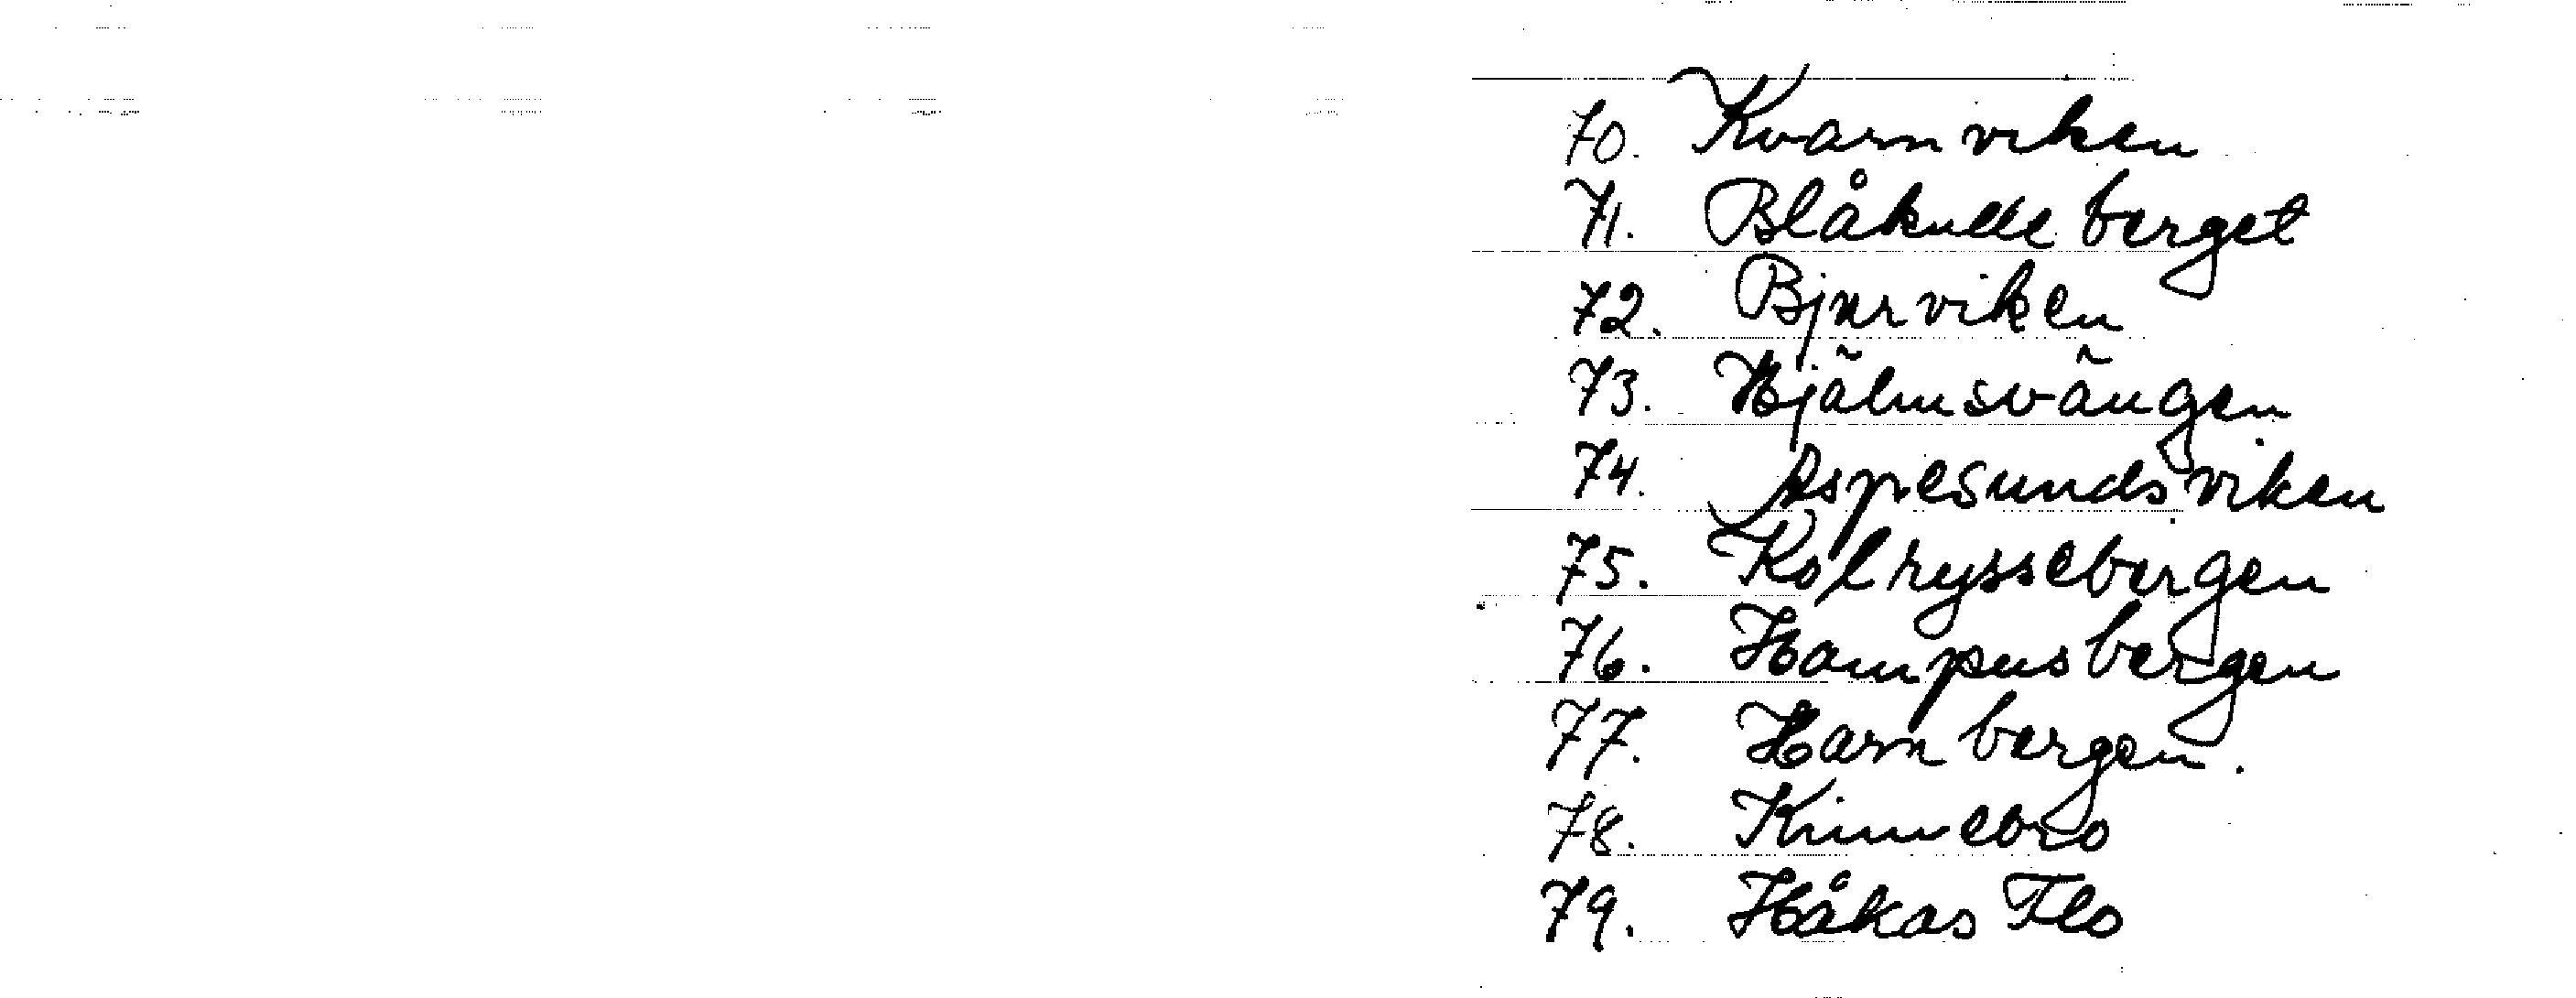 70. Kvarnviken
71. Blåkulleberget
72. Bjurviken
73. Hjälmsvängen
74. Aspesundsviken
75. Kolryssebergen
76. Hampusbergen
77. Harnbergen.
78. Kinnebro
79. Håkas Flo